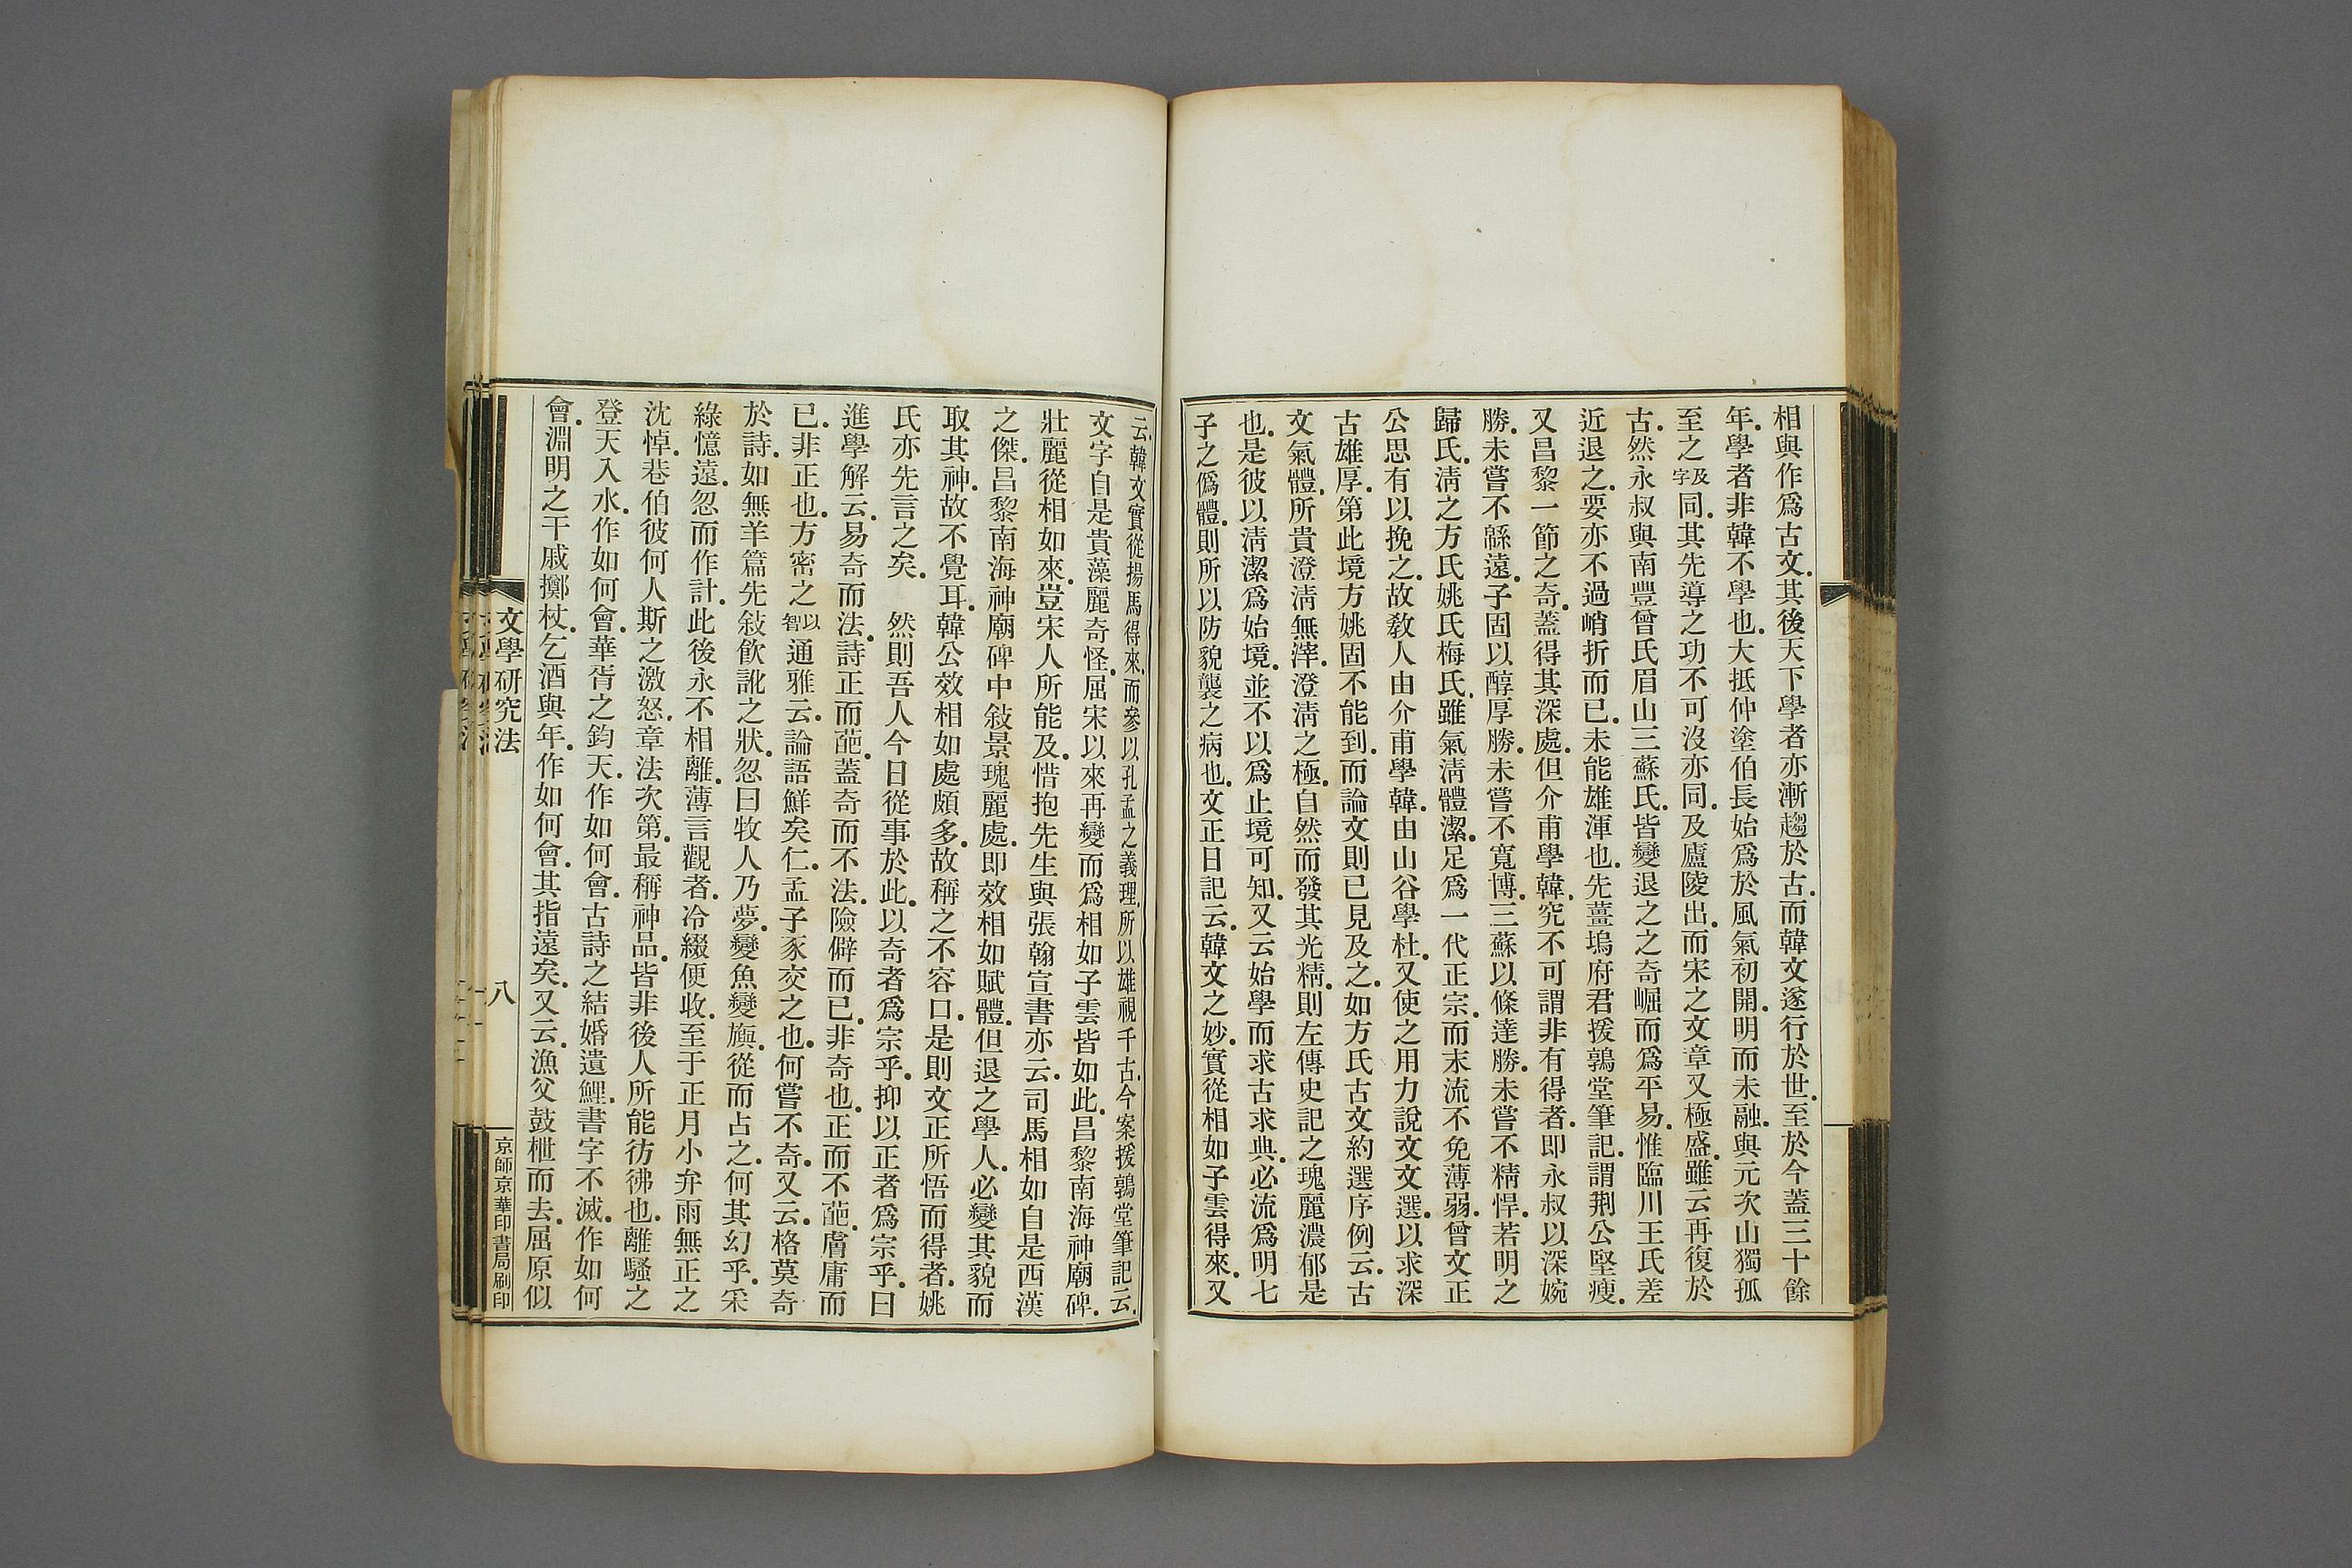 相與作爲古文.其後天下學者亦漸趨於古.而韓文遂行於世.至於今蓋三十餘
年.學者非韓不學也.大抵仲塗伯長始爲於風氣初開.明而未融.與元次山獨孤
至之及字同.其先導之功不可沒亦同.及廬陵出.而宋之文章又極盛.雖云再復於
古.然永叔與南豐曾氏眉山三蘇氏.皆變退之之奇崛而爲平易.惟臨川王氏差
近退之.要亦不過峭折而已.未能雄渾也.先薑塢府君援鶉堂筆記.謂荆公堅瘦.
又昌黎一節之奇.蓋得其深處.但介甫學韓.究不可謂非有得者.即永叔以深婉
勝.未嘗不緜遠.子固以醇厚勝.未嘗不寬博.三蘇以條達勝.未嘗不精悍.若明之
歸氏.淸之方氏姚氏梅氏.雖氣淸體潔.足爲一代正宗.而末流不免薄弱.曾文正
公思有以挽之.故敎人由介甫學韓.由山谷學杜.又使之用力說文文選.以求深
古雄厚.第此境方姚固不能到.而論文則已見及之.如方氏古文約選序例云.古
文氣體.所貴澄淸無滓.澄淸之極.自然而發其光精.則左傳史記之瑰麗濃郁是
也.是彼以淸潔爲始境.並不以爲止境可知.又云始學而求古求典.必流爲明七
子之僞體.則所以防貌襲之病也.文正日記云.韓文之妙.實從相如子雲得來.又
云.韓文實從揚馬得來.而參以孔孟之義理.所以雄視千古.今案援鶉堂筆記云.
文字自是貴藻麗奇怪.屈宋以來再變而爲相如子雲皆如此.昌黎南海神廟碑.
壯麗從相如來.豈宋人所能及.惜抱先生與張翰宣書亦云.司馬相如自是西漢
之傑.昌黎南海神廟碑中敍景瑰麗處.即效相如賦體.但退之學人.必變其貌而
取其神.故不覺耳.韓公效相如處頗多.故稱之不容口.是則文正所悟而得者.姚
氏亦先言之矣. 然則吾人今日從事於此.以奇者爲宗乎.抑以正者爲宗乎.曰
進學解云.易奇而法.詩正而葩.蓋奇而不法.險僻而已.非奇也.正而不葩.膚庸而
已.非正也.方密之以智通雅云.論語鮮矣仁.孟子豕交之也.何嘗不奇.又云.格莫奇
於詩.如無羊篇先敍飮訛之狀.忽曰牧人乃夢.變魚變旟.從而占之.何其幻乎.采
綠憶遠.忽而作計.此後永不相離.薄言觀者.冷綴便收.至于正月小弁雨無正之
沈悼.巷伯彼何人斯之激怒.章法次第.最稱神品.皆非後人所能彷彿也.離騷之
登天入水.作如何會.華胥之鈞天.作如何會.古詩之結婚遺鯉.書字不滅.作如何
會.淵明之干戚擲杖.乞酒與年.作如何會.其指遠矣.又云.漁父鼓枻而去.屈原似
文學研究法
八
京師京華印書局刷印